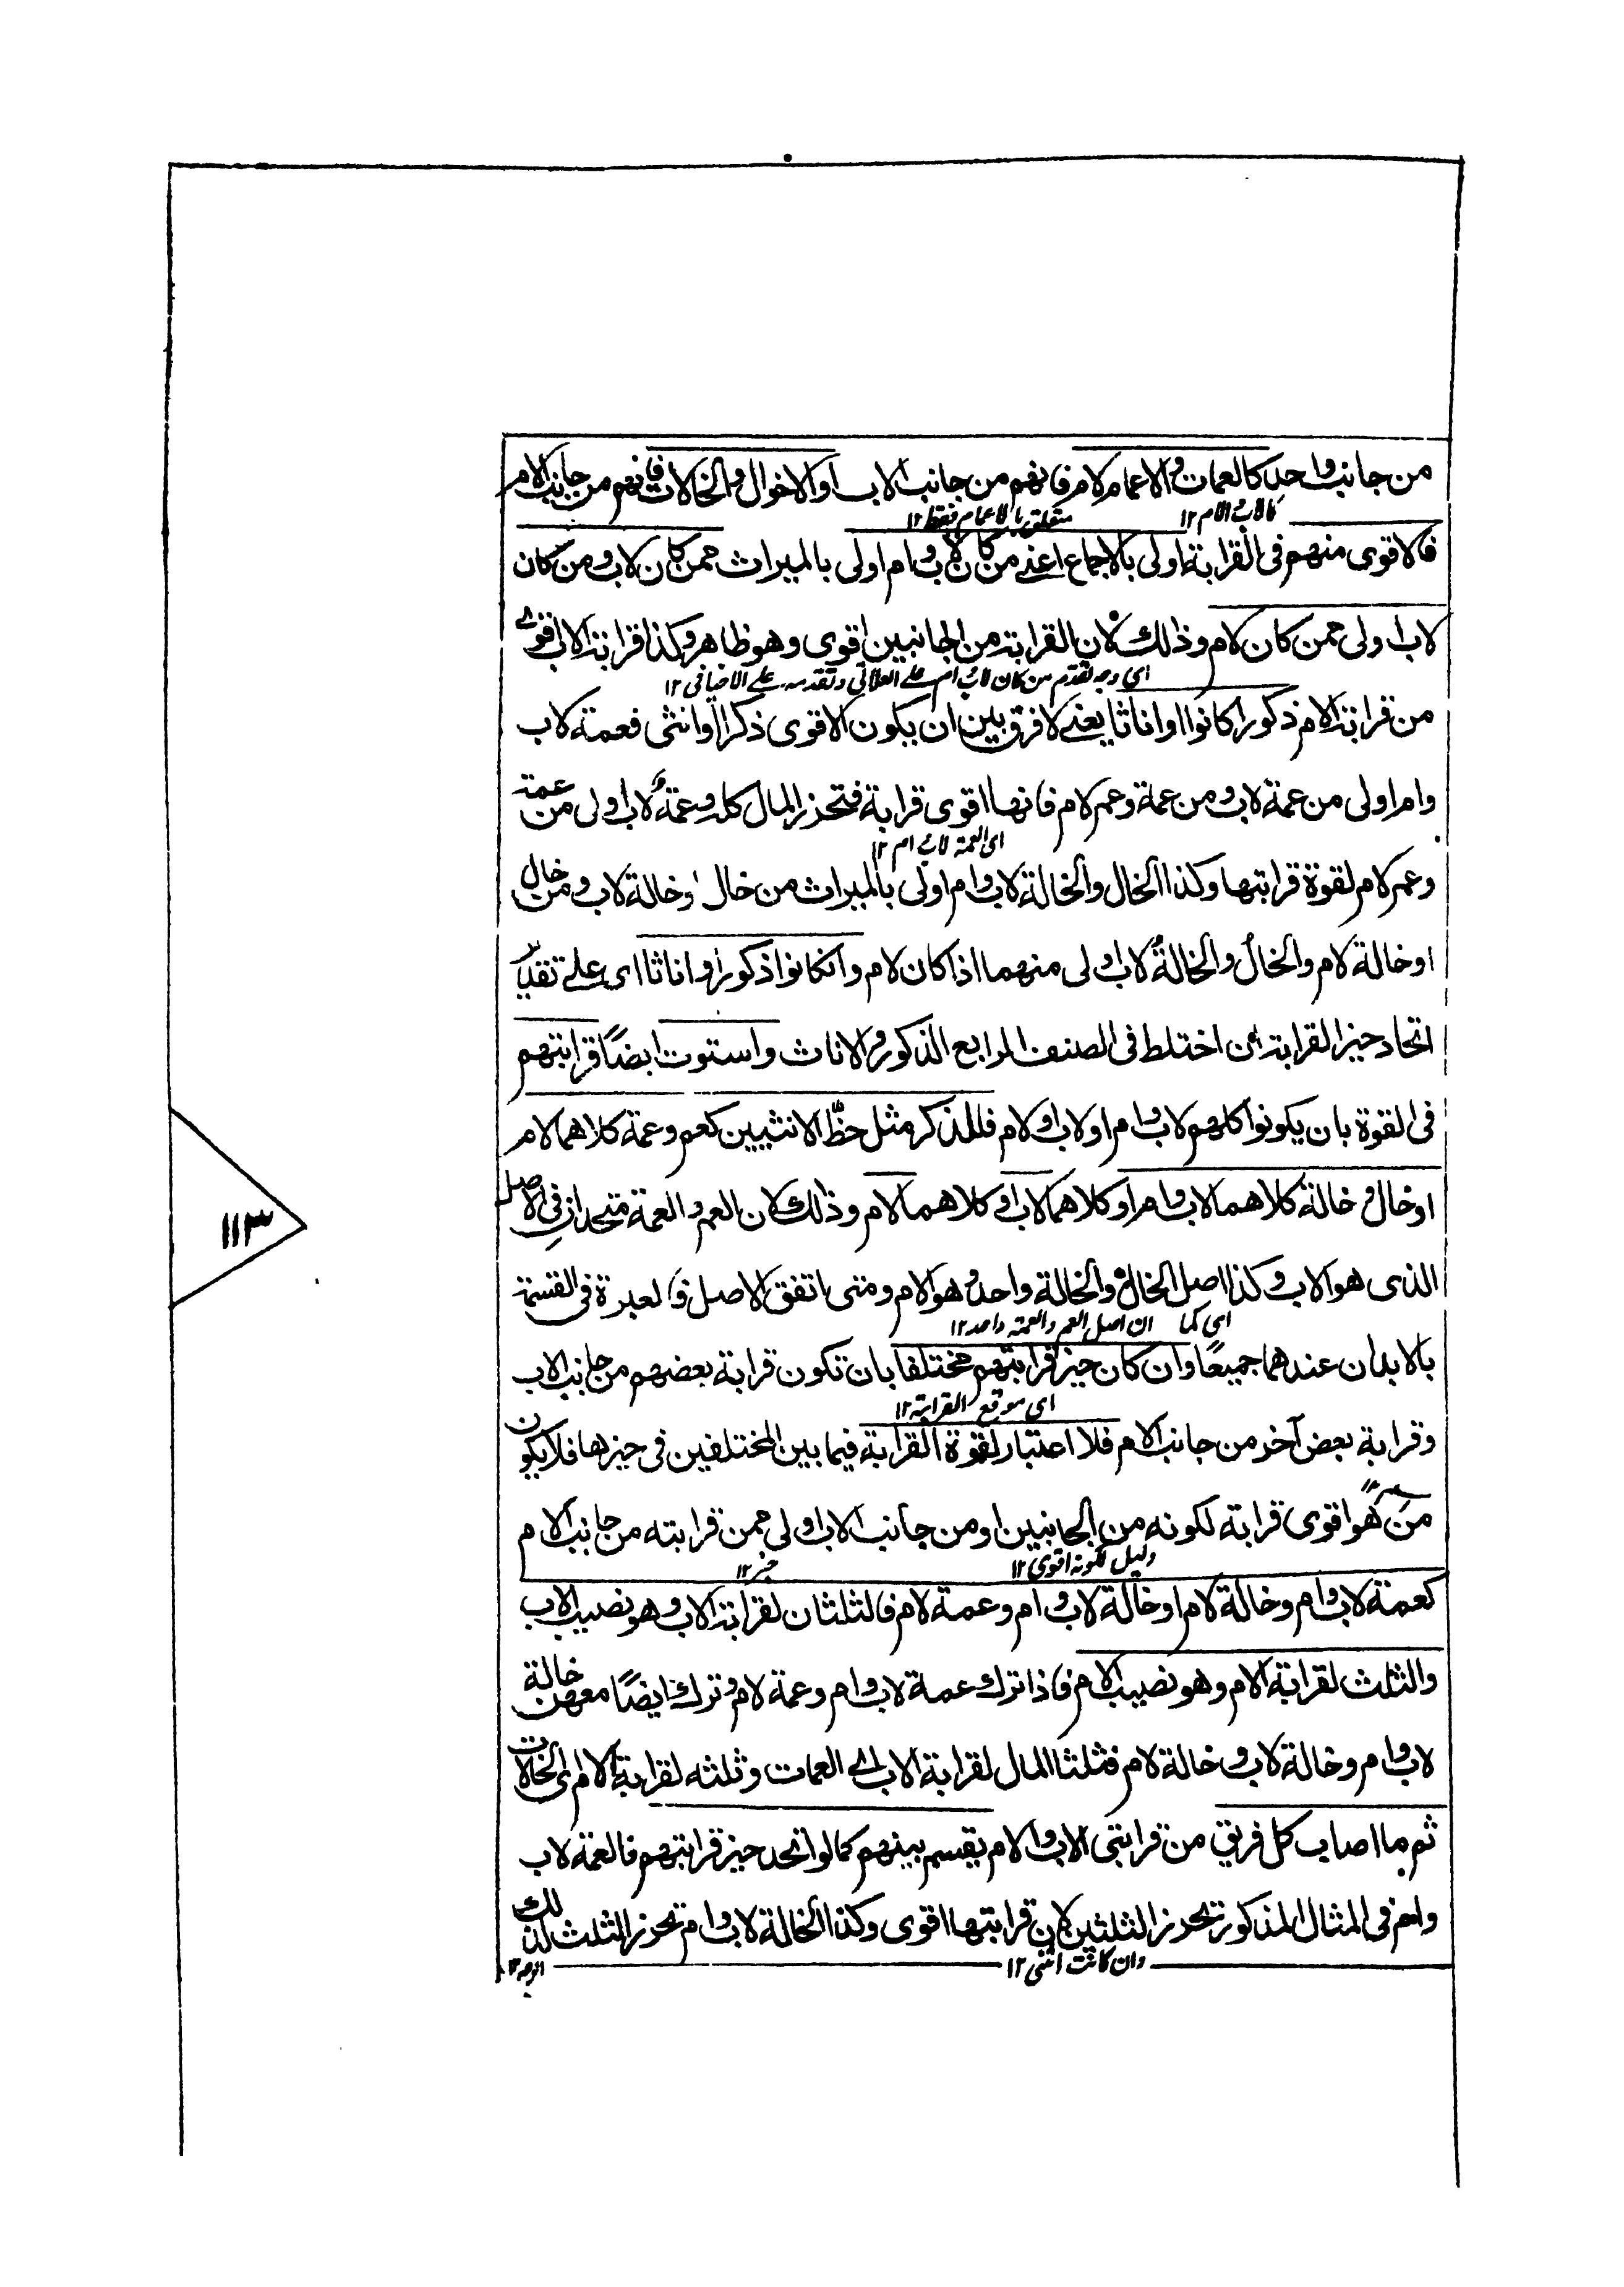 من جانب واحد كالعمات والاعمام لام فانهم من جانب الاب او الاخوال والخالات فانهم من جانب الام
كالاب والام ١٢
متعلق بالاعمام فقط ١٢
فالاقوى منهم فى القرابة اولى بالاجماع اعنے من كان لاب وام اولى بالميراث ممن كان لاب ومن كان
لاب اولى ممن كان لام وذلك لان القرابة من الجانبين اقوى وهو ظاهر وكذا قرابة الاب اقوے
اى وجه تقدم من كان لاب و ام على العلاتى وتقدمه على الاخيافى ١٢
من قرابة الام ذكورا كانوا او اناثا يعنے لا فرق بين ان يكون الاقوى ذكرا او انثى فعمة لاب
وام اولى من عمة لاب ومن عمة وعم لام فانها اقوى قرابة فتحرز المال كله وعمة لاب اولى من عمة
اى العمة لاب و ام ١٢
وعم لام لقوة قرابتها وكذا الخال والخالة لاب وام اولى بالميراث من خال وخالة لاب ومن خال
او خالة لام والخال والخالة لاب اولى منهما اذا كان لام وان كانوا ذكورا واناثا اى على تقدير
اتحاد حيز القرابة ان اختلط فى الصنف الرابع الذكور والاناث واستوت ايضًا قرابتهم
فى القوة بان يكونوا كلهم لاب وام او لاب او لام فللذكر مثل حظّ الانثيين كعم وعمة كلاهما لام
او خال و خالة كلاهما لاب وام او كلاهما لاب او كلاهما لام وذلك لان العم و العمة متحدان فى الاصل
الذى هو الاب وكذا اصل الخال والخالة واحد وهو الام ومتى اتفق الاصل فالعبرة فى القسمة
اى كما ان اصل العم والعمة واحد ١٢
بالابدان عندهما جميعًا وان كان حيز قرابتهم مختلفا بان تكون قرابة بعضهم من جانب الاب
اى موقع القرابة ١٢
وقرابة بعض آخر من جانب الام فلا اعتبار لقوة القرابة فيما بين المختلفين فى حيزها فلا يكون
من هو اقوى قرابة لكونه من الجانبين او من جانب الاب اولى ممن قرابته من جانب الام
دليل لكونه اقوى ١٢
خبر ١٢
كعمة لاب وام وخالة لام او خالة لاب وام وعمة لام فالثلثان لقرابة الاب وهو نصيب الاب
والثلث لقرابة الام وهو نصيب الام فاذا ترك عمة لاب وام وعمة لام وترك ايضًا معهن خالة
لاب وام وخالة لاب وخالة لام فثلثا المال لقرابة الاب اى العمات وثلثه لقرابة الام اى الخالات
ثم ما اصاب كل فريق من قرابتى الاب والام يقسم بينهم كما لو اتحد حيز قرابتهم فالعمة لاب
وام فى المثال المذكور تحرز الثلثين لان قرابتها اقوى وكذا الخالة لاب وام تحرز الثلث لذلك
وان كانت انثى ١٢
الوجه ١٢
١١٣